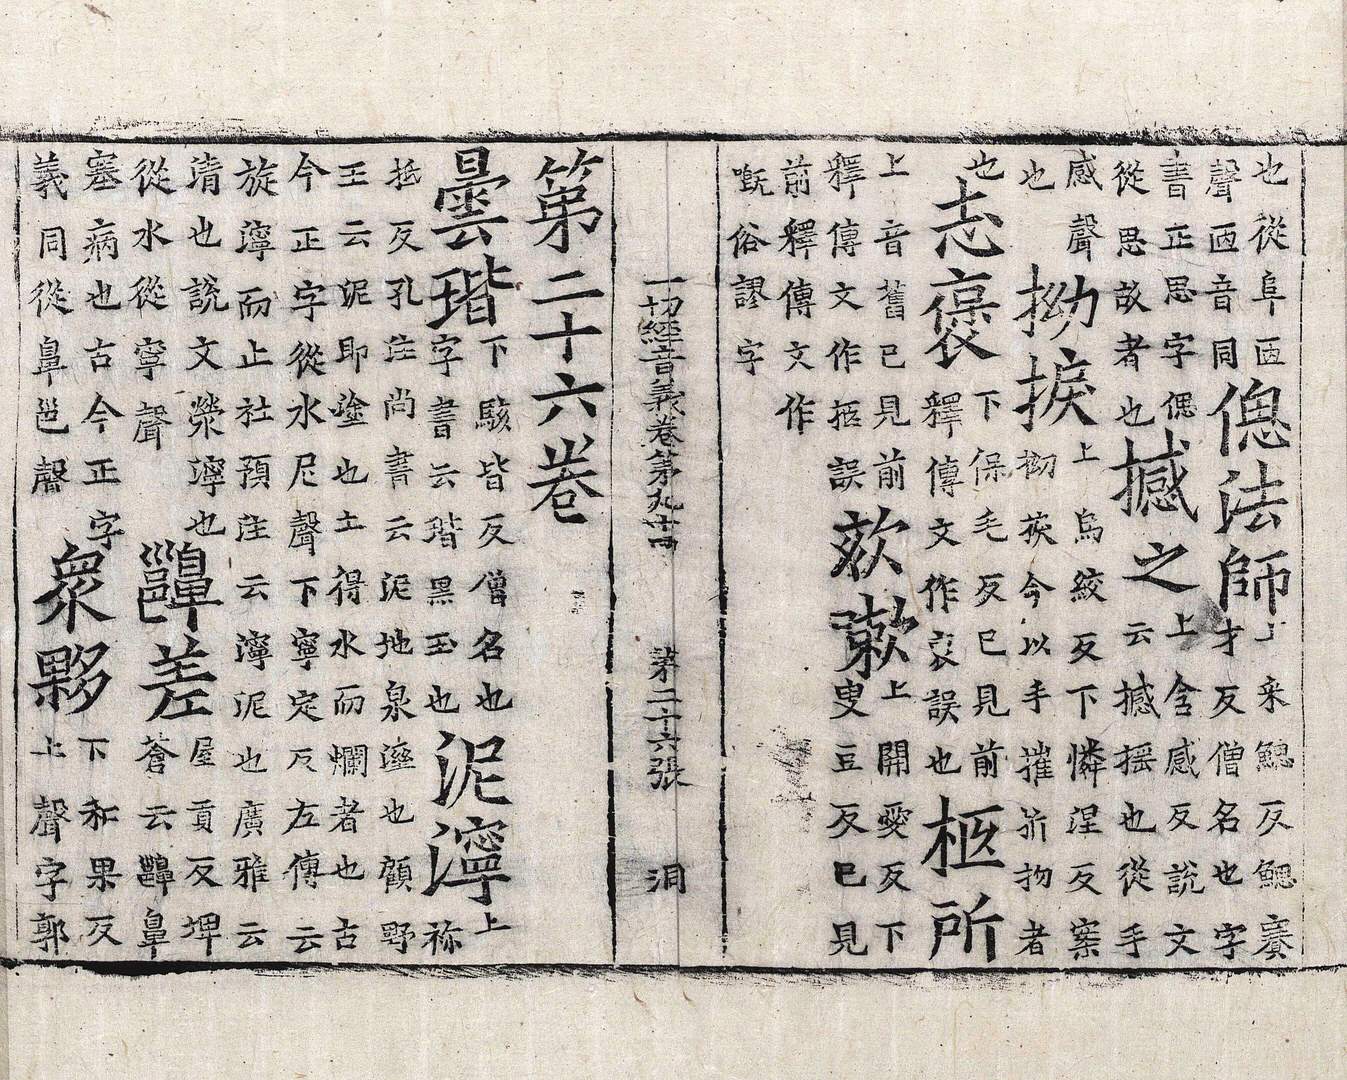 也從阜𠧟聲𠧟音同偲法師上来鰓反鰓賽才反僧名也字
書正思字偲從思敀者也撼之上含感反說文云撼揺也從手
感聲也拗捩上烏絞反下憐涅反案拗捩今以手摧折物者
也志褒下保毛反已見前釋傳文作裒誤也柩所
上音舊已見前釋傳文作柩誤欬瘶上開愛反下叟豆反已見
前釋傳文作嘅俗謬字
一切經音義卷第九十四 第二十六張 洞
第二十六卷
曇瑎下駭皆反僧名也字書云瑎黑玉也泥濘上祢
抵反孔注尚書云泥地泉濕也顧野王云泥即塗也土得水而爛者也古
今正字從水尼聲下寧定反左傳云旋濘而止社預注云濘泥也廣雅云
清也說文滎濘也從水從寧聲齆差屋貢反埤蒼云齆鼻
塞病也古今正字義同從鼻邕聲衆夥下和果反上聲字郭